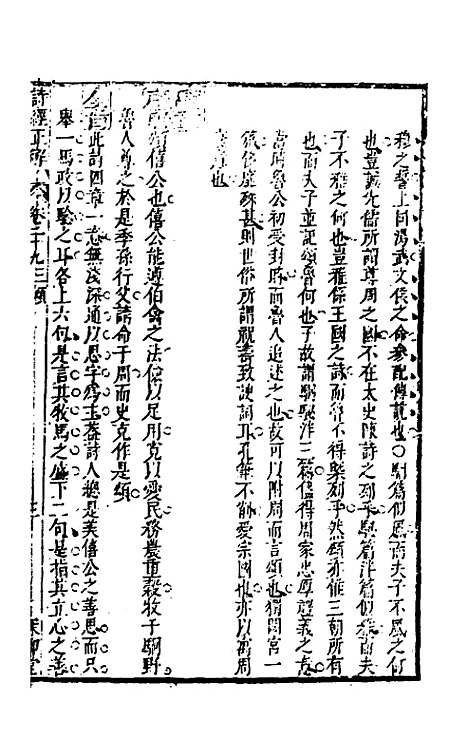 穆之誓上同湯武文侯之命參配傳說也○駉篇似風而夫子不風之何
也豈誠先儒所謂尊周之國不在太史陳詩之列乎駜篇泮篇似雅而夫
子不雅之何也豈雅係王國之詠而魯不得槩列乎然頌亦惟三朝所有
也而夫子並記頌魯何也予故謂駉駜泮三篇僖得周家忠厚禮義之
當時魯公初受封時而魯人追述之也故可以附周而言頌也獨閟宮一
則世俗所謂祝壽致諛詞耳孔筆不削愛宗國也亦以寓周
也
僖公也僖公能遵伯禽之法儉以足用寬以愛民務農重穀牧于駉野
魯人尊之於是季孫行父請命于周而史克作是頌
此詩四章一意無淺深通以思字為主葢詩人總是美僖公之善思而只
舉一馬政以驗之耳各上六句是言其牧馬之盛下二句是指其立心之善
詩經 卷二十九 三頌